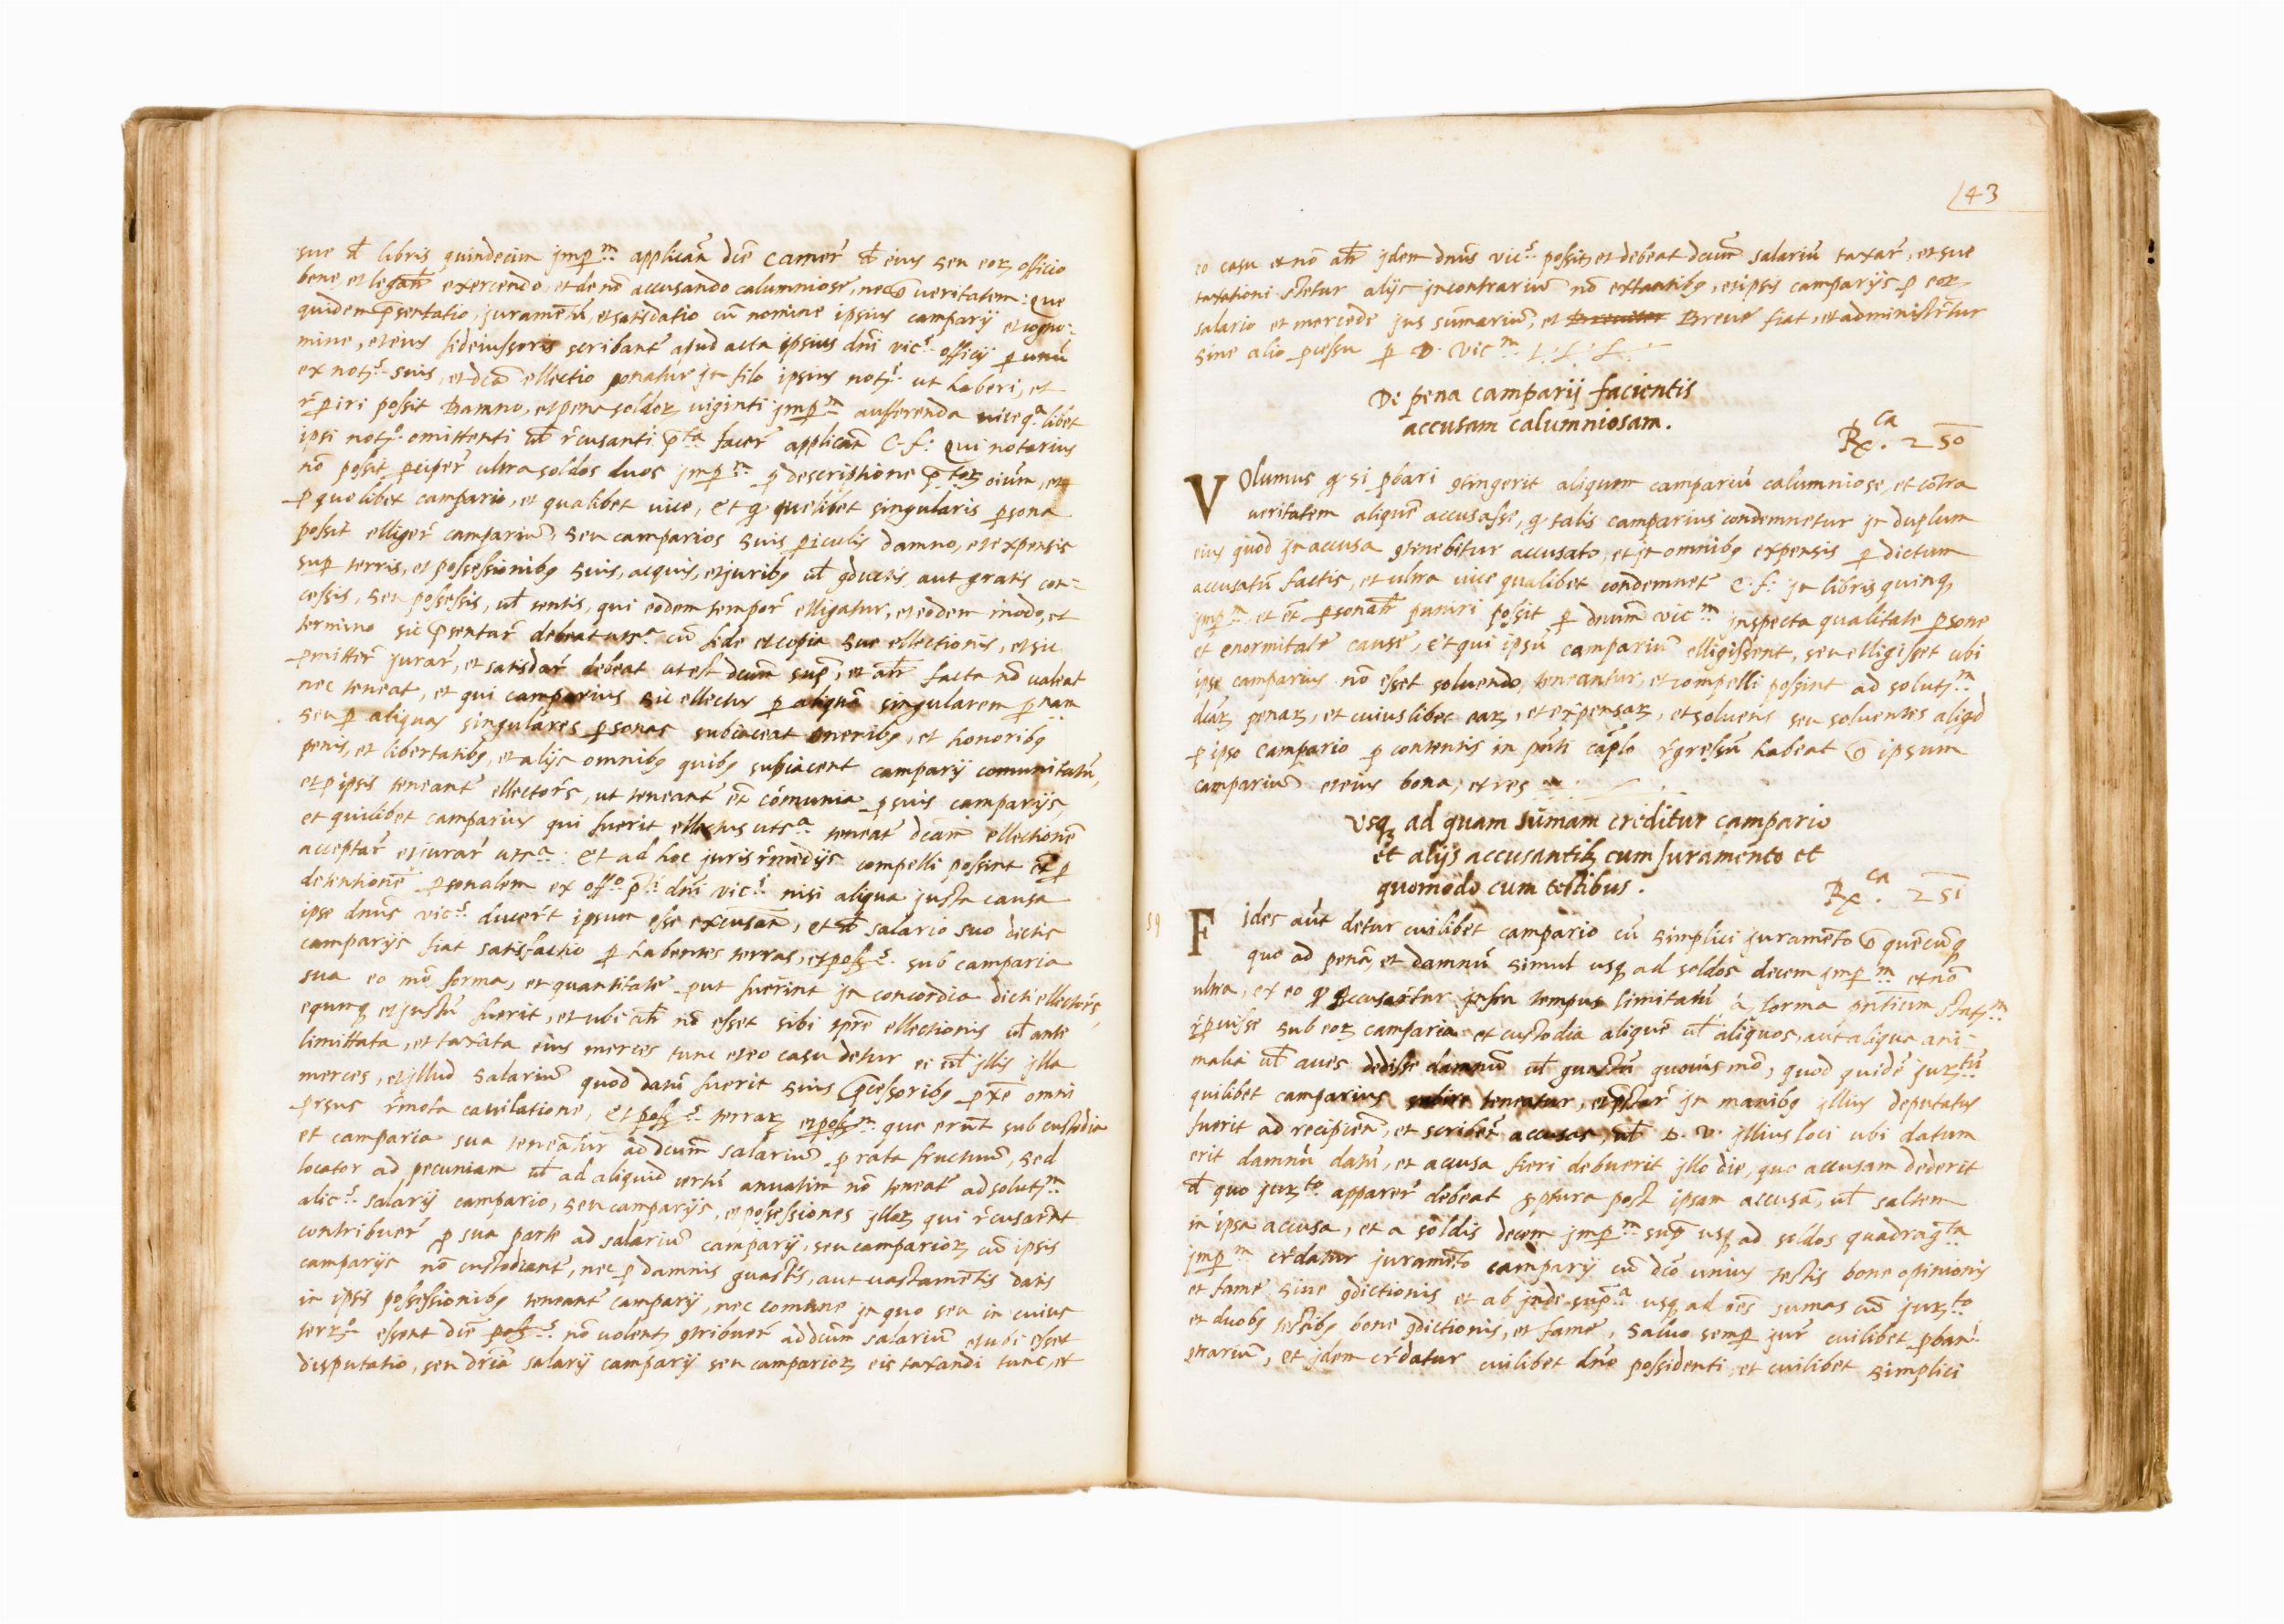 sue đ libris quindecim jmp.m applicān dcē Camer̄ đ eius seu eoꝝ officio
bene, et legałr exercendo, et de nō accusando calumniose, nec ꝯ veritatem: Que
quidem p̄sentatio, juramētū, et satisdatio cū nomine ipsius camparij et cogno=
mine, et eius fideiussoris scribant̄ apud acta ipsius dn̄i vic.s officij ꝑ unū
ex not.s suis, et dcā ellectio ponatur jn filo ipsius not.s ut haberi, et
r̄ꝑiri possit Damno, et pena soldoꝝ uiginti jmp.m aufferenda vice q.a libet
ipsi not.o omittenti uł r̄cusanti p̄.ta facer̄ applicān C. f: Qui notarius
nō possit ꝑciper̄ ultra soldos duos jmp.m ꝓ descriptione p̄.toꝝ oium, et
ꝓ quolibet campario, et qualibet vice, Et ꝙ quelibet singularis ꝑsona
possit elliger̄ camparium, seu camparios suis ꝑiculis damno, et expensis
suꝑ terris, et possessionibꝫ suis, acquis, et juribꝫ uł ꝯductis, aut gratis con=
cessis, seu possessis, uł tentis, qui eodem tempor̄ elligatur, et eodem modo, et
termino sic p̄sentar̄ debeat ut s.a cū fide et copia sue ellectionis, et sic
ꝓmitter̄ jurar̄, et satisdar̄ debeat ut est dcūm sup̄, et ałr facta nō valeat
nec teneat, et qui camparius sic ellectus ꝑ aliquā singularem ꝑnam
seu ꝑ aliquas singulares ꝑsonas subiaceat oneribꝫ, et honoribꝫ
penis, et libertatibꝫ, et alijs omnibꝫ quibꝫ subiacent camparij comunitatū,
et ꝓ ipsis teneant̄ ellector̄s, ut teneant̄ et̄ cōmunia ꝓ suis camparijs,
et quilibet camparius qui fuerit ellectus ut s.a teneat̄ dcām ellectionē
acceptar̄ et jurar̄ ut s.a: Et ad hoc juris r̄medijs compelli possint et̄ ꝑ
detentionē ꝑsonalem ex off.o p.ti dn̄i vic.s nisi aliqua justa causa
ipse dnūs vic.s ducer̄t ipsum esse excusān, et đ salario suo dictis
camparijs fiat satisfactio ꝑ habentes terras, et poss.s sub camparia
sua eo mō, forma, et quantitate ꝓut fuerint jn concordia dicti ellector̄s,
equinꝗ et justū fuerit, et ubi ałr nō esset sibi tpr̄e ellectionis uł ante
limittata, et taxata eius merces tunc et eo casu detur ei uł jllis jlla
merces, et jllud salarium quod datū fuerit suis p̄cessoribꝫ ꝓxe omni
ꝓrsus r̄mota cavilatione, Et poss.s terraꝝ et poss.m que erūt sub custodia
et camparia sua teneātur ad dcūm salarium ꝓ rata fructuum, sed
locator ad pecuniam uł ad aliquid certū anuatim nō teneat̄ ad solut.m
alic.s salarij campario, seu camparijs, et possessiones jlloꝝ qui r̄cusarīt
contribuer̄ ꝓ sua parte ad salarium camparij, seu camparioꝝ cū ipsis
camparijs nō custodiant̄, nec ꝓ damnis guastis, aut vastamētis datis
in ipsis possessionibꝫ teneant̄ camparij, nec comune jn quo seu in cuius
terr.o essent dcē poss.s nō volent ꝯtribuer̄ ad dcūm salarium et ubi esset
disputatio, seu dr̄ia salarij camparij seu camparioꝝ eis taxandi tunc, et
43
eo casu et nō ałr jdem dnūs vic.s possit, et debeat dcūm salariū taxar̄, et sue
taxationi stetur alijs jn contrarium nō extantibꝫ, et ipsis camparijs ꝓ eoꝝ
salario et mercede jus sūmarium, et Breve fiat, et administretur
sine alio ꝓcessu ꝑ D. Vic.m
De pena camparij facientis
accusam calumniosam.
Rx.ca 250
Volumus ꝙ si ꝓbari ꝯtingerit aliquem campariū calumniose, et cōtra
veritatem aliquē accusasse, ꝙ talis camparius condemnetur jn duplum
eius quod jn accusa ꝯtinebitur accusato, et jn omnibꝫ expensis ꝑ dictum
accusatū factis, et ultra vice qualibet condemnet̄ C. f: jn libris quinꝗ
jmp.m, et et̄ ꝑsonałr puniri possit ꝑ dnūm vic.m jnspecta qualitate ꝑsone
et enormitate cause, Et qui ipsū camparium elligissent, seu elligisset ubi
ipse camparius nō esset solvendo, teneantur, et compelli possint ad solut.m
dcāꝝ penaꝝ, et cuiuslibet eaꝝ, et expensaꝝ, et solvens seu solventes aliqd
ꝓ ipso campario ꝓ contentis in pn̄ti cap̄lo r̄gressū habeat ꝯ ipsum
camparium et eius bona, et res
Usꝗ ad quam sūmam creditur campario
et alijs accusantibꝫ cum Juramento et
quomodo cum testibus.
Rx.ca 251
59
Fides aūt detur cuilibet campario cū simplici juramēto ꝯ quēcunꝗ
quo ad penā, et damnū simul usꝗ ad soldos decem jmp.m et nō
ultra, ex eo ꝙ Accusar̄tur jnfra tempus limitatū a forma pn̄tium stat.m
r̄ꝑuisse sub eoꝝ camparia et custodia aliquē uł aliquos, aut aliqua ani=
malia uł aues dedisse damnū uł guastū quovis mō, quod quidē jur.tū
quilibet camparius subire teneatur, et p̄star̄ jn manibꝫ jllius deputatus
fuerit ad recipien̄, et scriben̄ accusas, uł D. V. jllius loci ubi datum
erit damnū datū, et accusa fieri debuerit jllo die, quo accusam dederit
đ quo jur.to apparer̄ debeat scriptura post ipsam accusā, uł saltem
in ipsa accusa, et a soldis decem jmp.m sup̄ usꝗ ad soldos quadrag.ta
jmp.m cr̄datur juramēto camparij cū dcō unius testis bone opinionis
et fame sine ꝯdictionis et ab jnde sup.a usꝗ ad oēs sumas cū jur.to
et duobꝫ testibꝫ bone ꝯdictionis, et fame, salvo semꝑ jur̄ cuilibet ꝓban̄
ꝯtrarium, et jdem cr̄datur cuilibet dnō possidenti, et cuilibet simplici